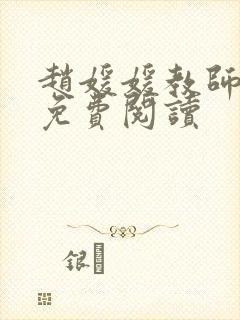 趙媛媛教師
免費閱讀
銀